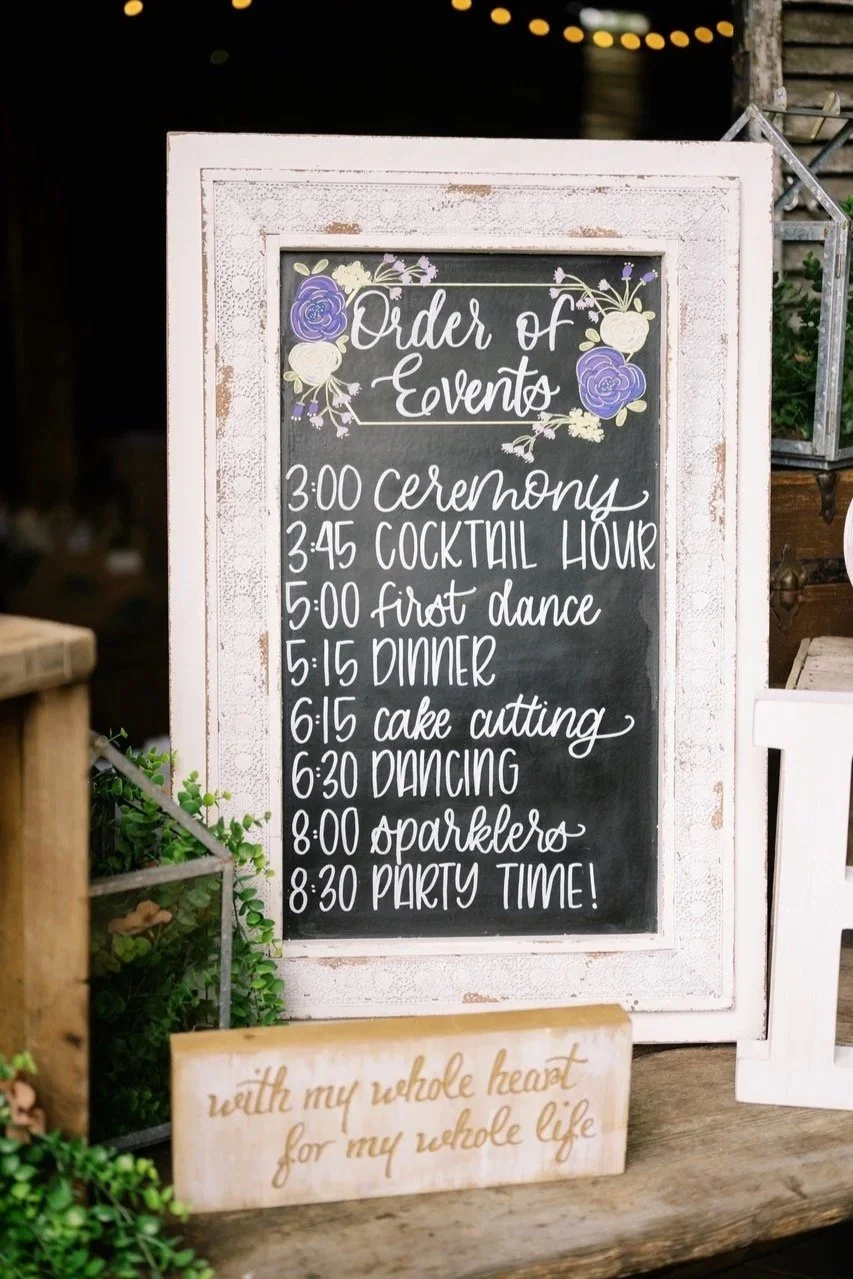 Order of
Events
3:00 ceremony
3:45 COCKTAIL HOUR
5:00 first dance
5:15 DINNER
6:15 cake cutting
6:30 DANCING
8:00 sparklers
8:30 PARTY TIME!
with my whole heart
for my whole life